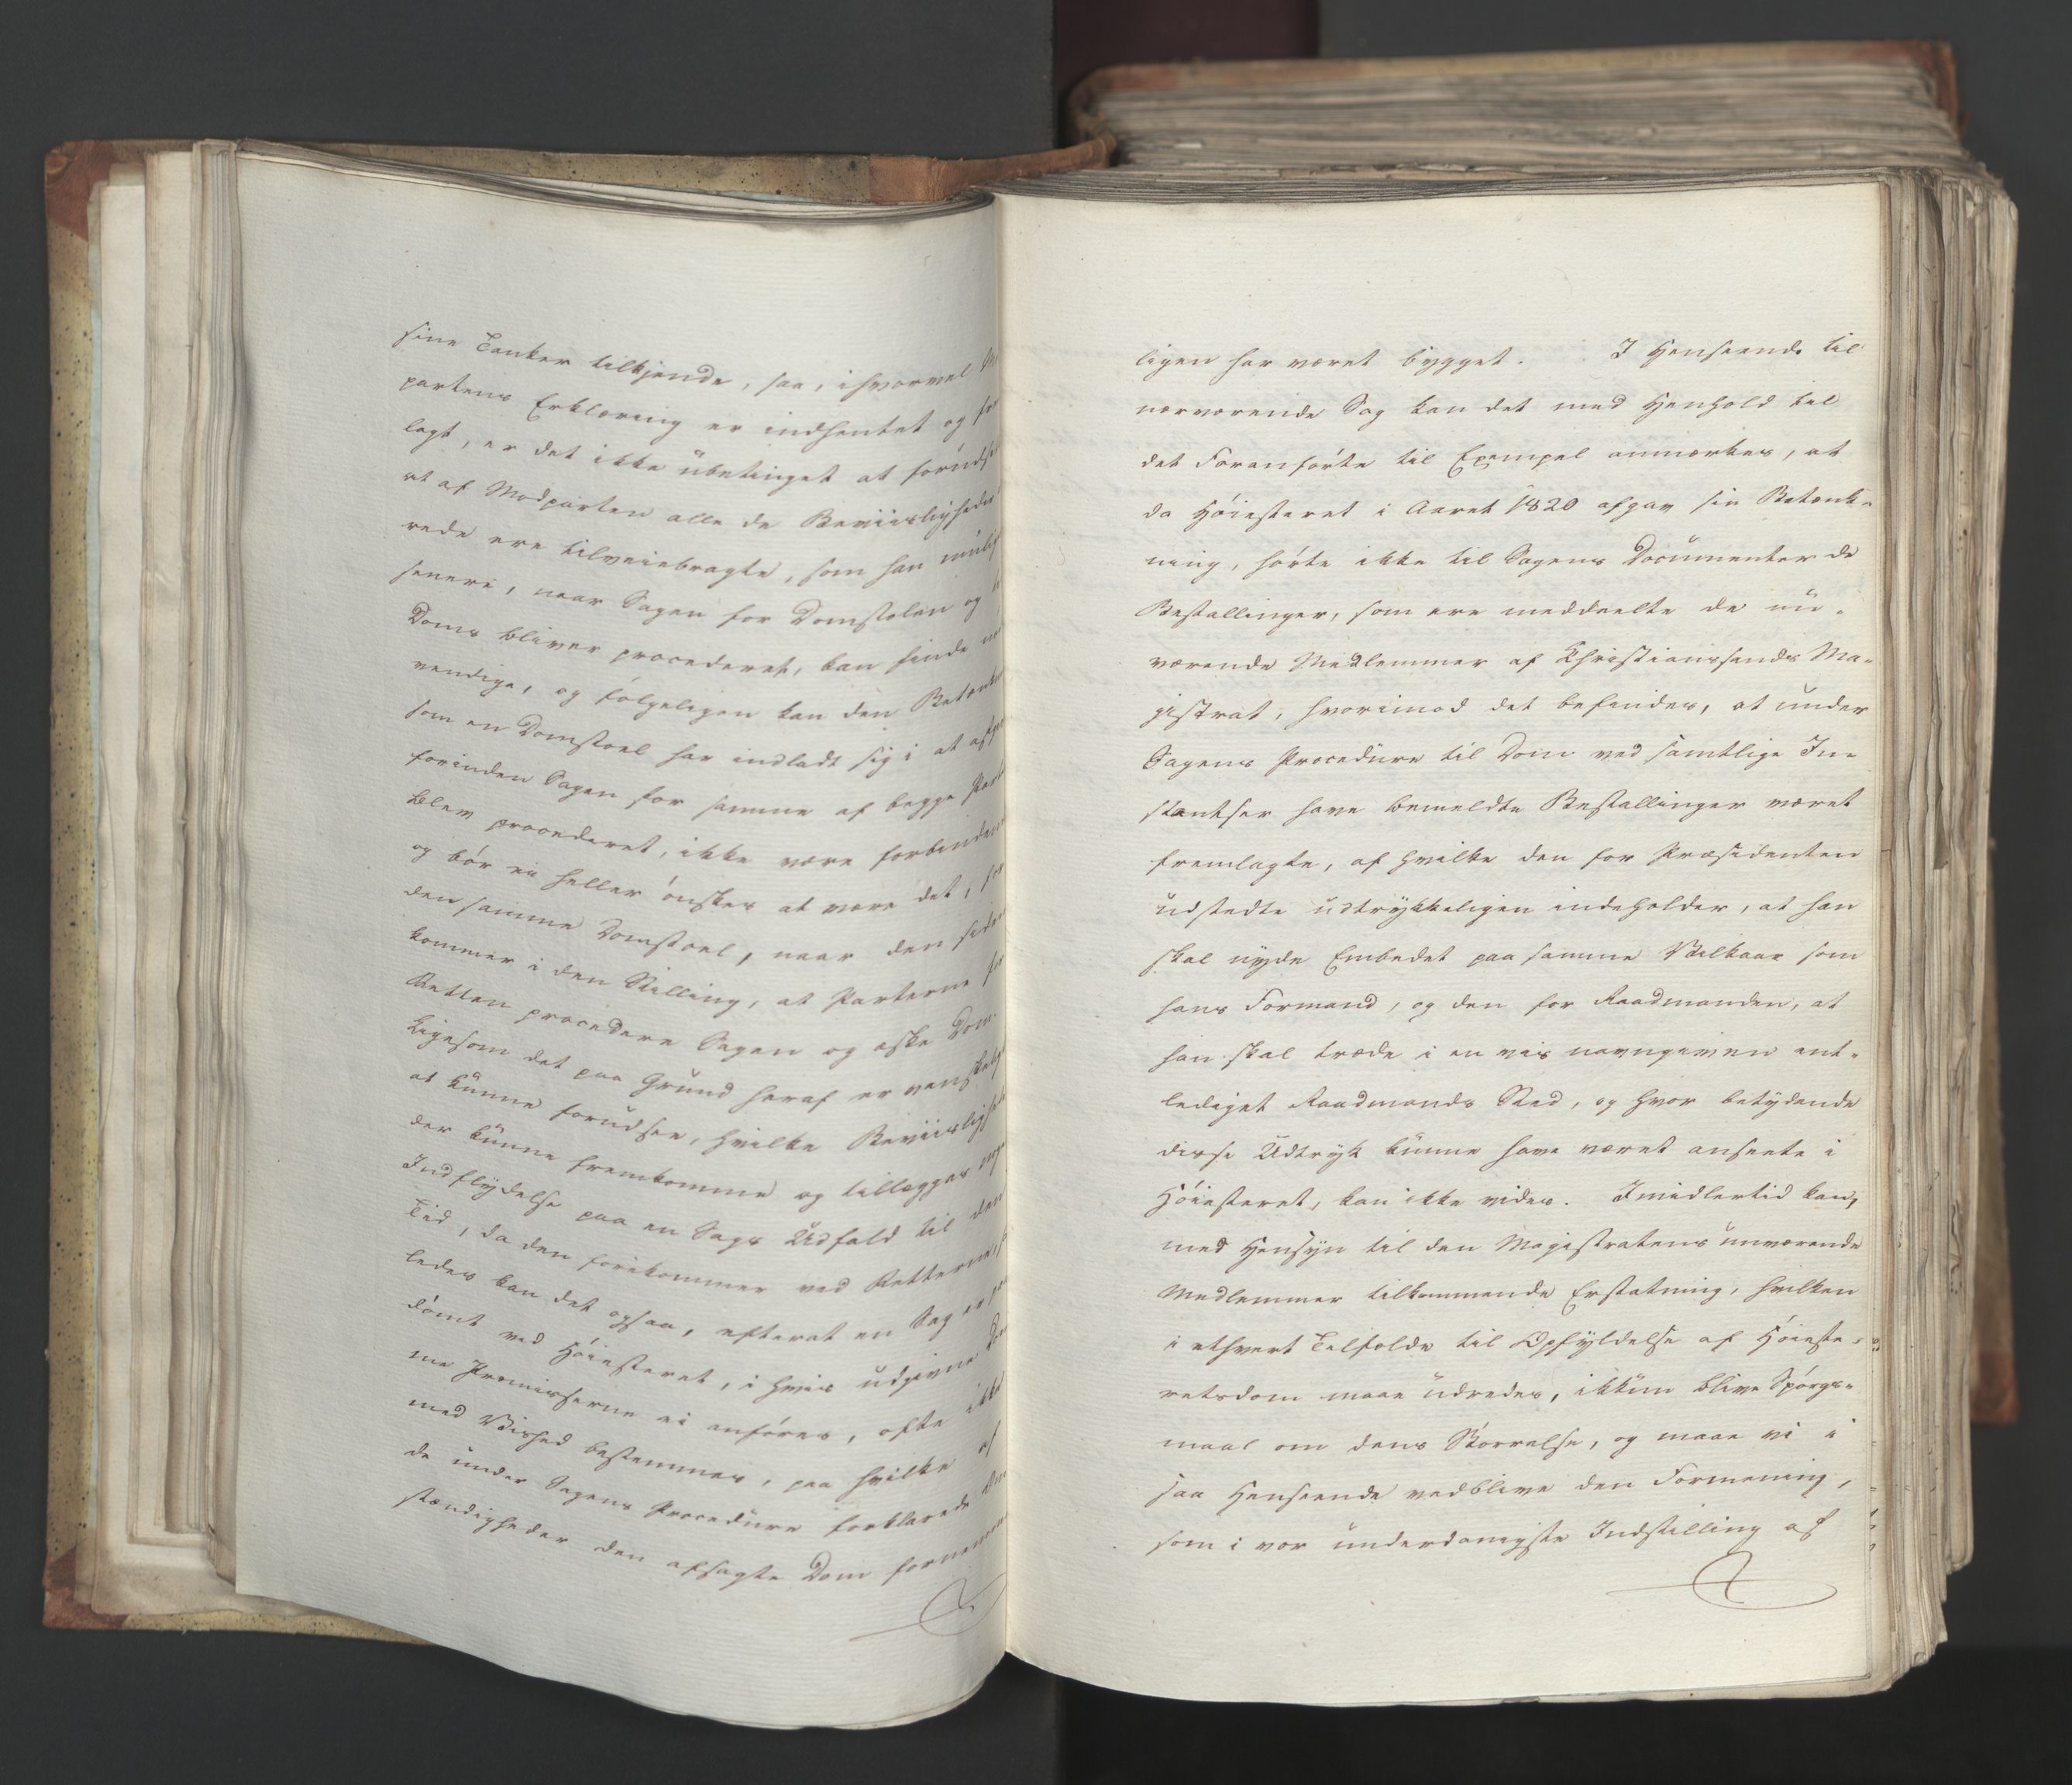 sine Tanker tilkjende, saa, ihvorvel
partens Erklæring er indhentet og
lagt, er det ikke ubetinget at
at af Modparten alle de Beviisligheder
rede ere tilveiebragte, som han
senere, naar Sagen for Domstolen og
Doms bliver procederet, kan finde
vendige, og følgeligen kan den
som en Domstoel har indladt sig i at
forinden Sagen for samme af begge
blev procederet, ikke være
og bør ei heller ønskes at være det,
den samme Domstoel, naar den
kommer i den Stilling, at Parterne for
Retten procedere Sagen og æske Dom.
Ligesom det paa Grund heraf er
at kunne forudsee, hvilke
der kunne fremkomme og tillægges
Indflydelse paa en Sags Udfald til den
Tid, da den forekommer ved Retterne,
ledes kan det ogsaa, efterat en Sag er
dømt ved Høiesteret, i hvis udgivne
me Præmisserne ei anføres, ofte ikke
med Vished bestemmes, paa hvilke af
de under Sagens Procedure forklarede
stændigheder den afsagte Dom
ligen har været bygget. I Henseende til
nærværende Sag kan det med Henhold til
det Foranførte til Exempel anmærkes, at
da Høiesteret i Aaret 1820 afgav sin Betænk-
ning, hørte ikke til Sagens Documenter de
Bestallinger, som ere meddeelte de nu-
værende Medlemmer af Christianssands Ma-
gistrat, hvorimod det befindes, at under
Sagens Procedure til Dom ved samtlige In-
stantser have bemeldte Bestallinger været
fremlagte, af hvilke den for Præsidenten
udstedte udtrykkeligen indeholder, at han
skal nyde Embedet paa samme Vilkaar som
hans Formand, og den for Raadmanden, at
han skal træde i en vis navngiven ent-
lediget Raadmands Sted, og hvor betydende
disse Udtryk kunne have været ansete i
Høiesteret, kan ikke vides. Imidlertid kan,
med Hensyn til den Magistratens nuværende
Medlemmer tilkommende Erstatning, hvilken
i ethvert Tilfælde til Opfyldelse af Høieste-
retsdom maae udredes, ikkun blive Spørgs-
maal om dens Størrelse, og maae vi i
saa Henseende vedblive den Formening,
som i vor underdanigste Indstilling af